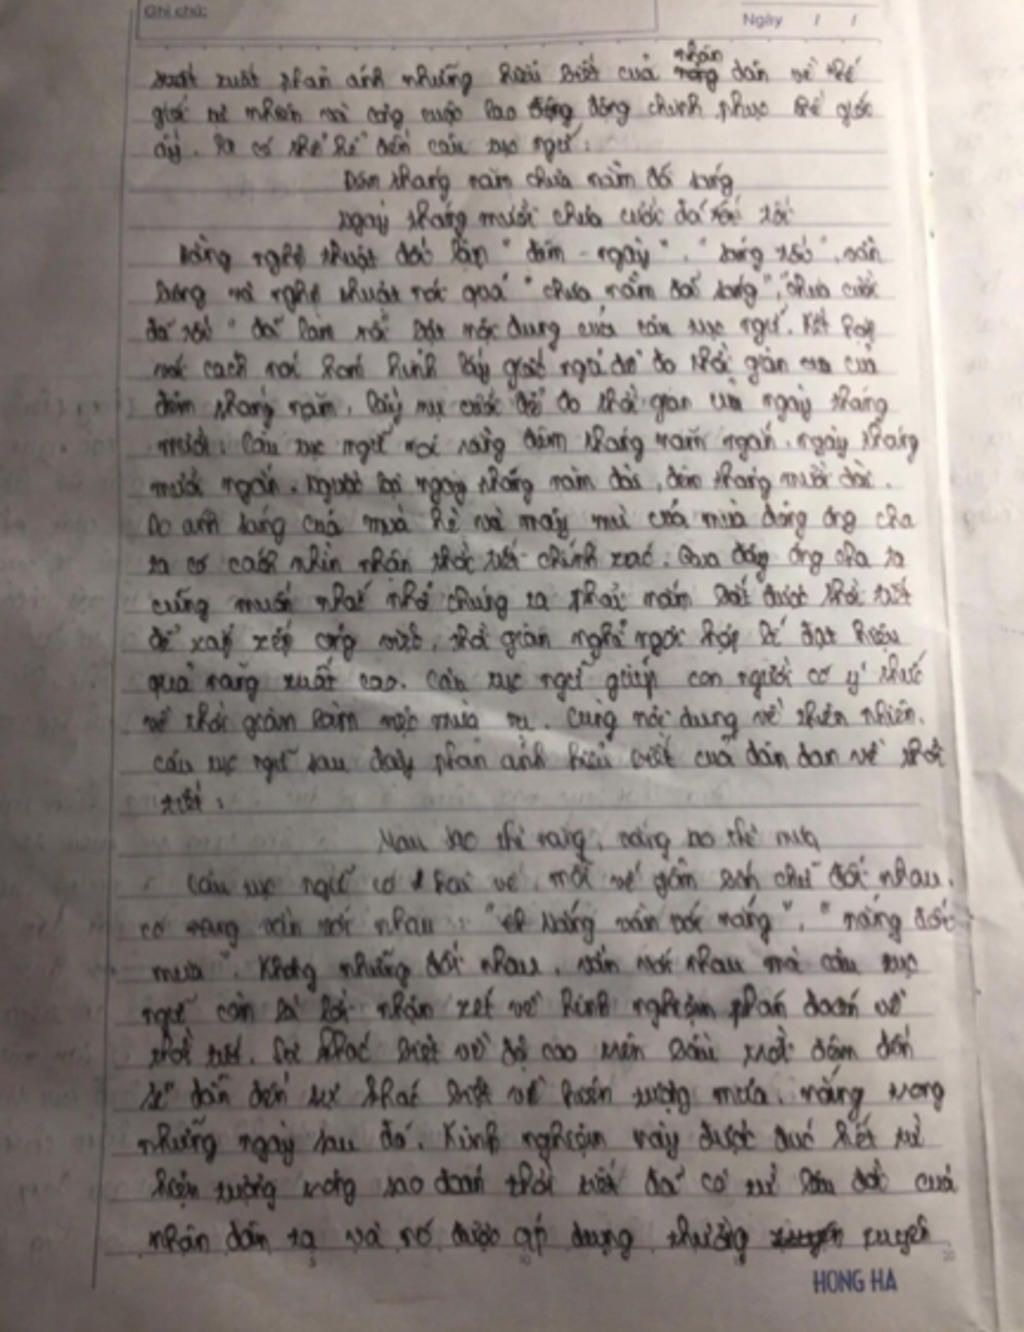 Ghi chú:
Ngày / /
xuất phản ánh những hiểu biết của nhân dân về thế
giới tự nhiên và công cuộc lao động chinh phục thế giới
ấy. Ta có thể kể đến câu tục ngữ:
Đêm tháng năm chưa nằm đã sáng
Ngày tháng mười chưa cười đã tối
Bằng nghệ thuật đối lập "đêm - ngày", "sáng tối", vần
lưng và nghệ thuật nói quá "chưa nằm đã sáng", "chưa cười
đã tối" đã làm nổi bật nội dung của câu tục ngữ. Kết hợp
với cách nói hóm hỉnh lấy giấc ngủ để đo thời gian của
đêm tháng năm, lấy nụ cười để đo thời gian của ngày tháng
mười. Câu tục ngữ nói rằng đêm tháng năm ngắn, ngày tháng
mười ngắn. Ngược lại ngày tháng năm dài, đêm tháng mười dài.
Do ánh sáng của mùa hè và mây mù của mùa đông ông cha
ta có cách nhìn nhận thời tiết chính xác. Qua đây ông cha ta
cũng muốn nhắc nhở chúng ta phải nắm bắt được thời tiết
để xắp xếp công việc, thời gian nghỉ ngơi hợp lí đạt hiệu
quả năng xuất cao. Câu tục ngữ giúp con người có ý thức
về thời gian làm việc mùa vụ. Cùng nội dung về thiên nhiên,
câu tục ngữ sau đây phản ánh hiểu biết của dân dan về thời
tiết:
Mau sao thì nắng, vắng sao thì mưa
Câu tục ngữ có hai vế, mỗi vế gồm bốn chữ đối nhau,
có vần với nhau "vắng vần với nắng", "nắng đối
mưa". Không những đối nhau, vần với nhau mà câu tục
ngữ còn là lời nhận xét về kinh nghiệm phán đoán về
thời tiết. Sự khác biệt về độ cao trên bầu trời đêm đến
sẽ dẫn đến sự khác biệt về hiện tượng mưa, nắng trong
những ngày sau đó. Kinh nghiệm này được đúc kết từ
hiện tượng trông sao đoán thời tiết đã có từ lâu đời của
nhân dân ta và nó được áp dụng thường xuyên
HONG HA